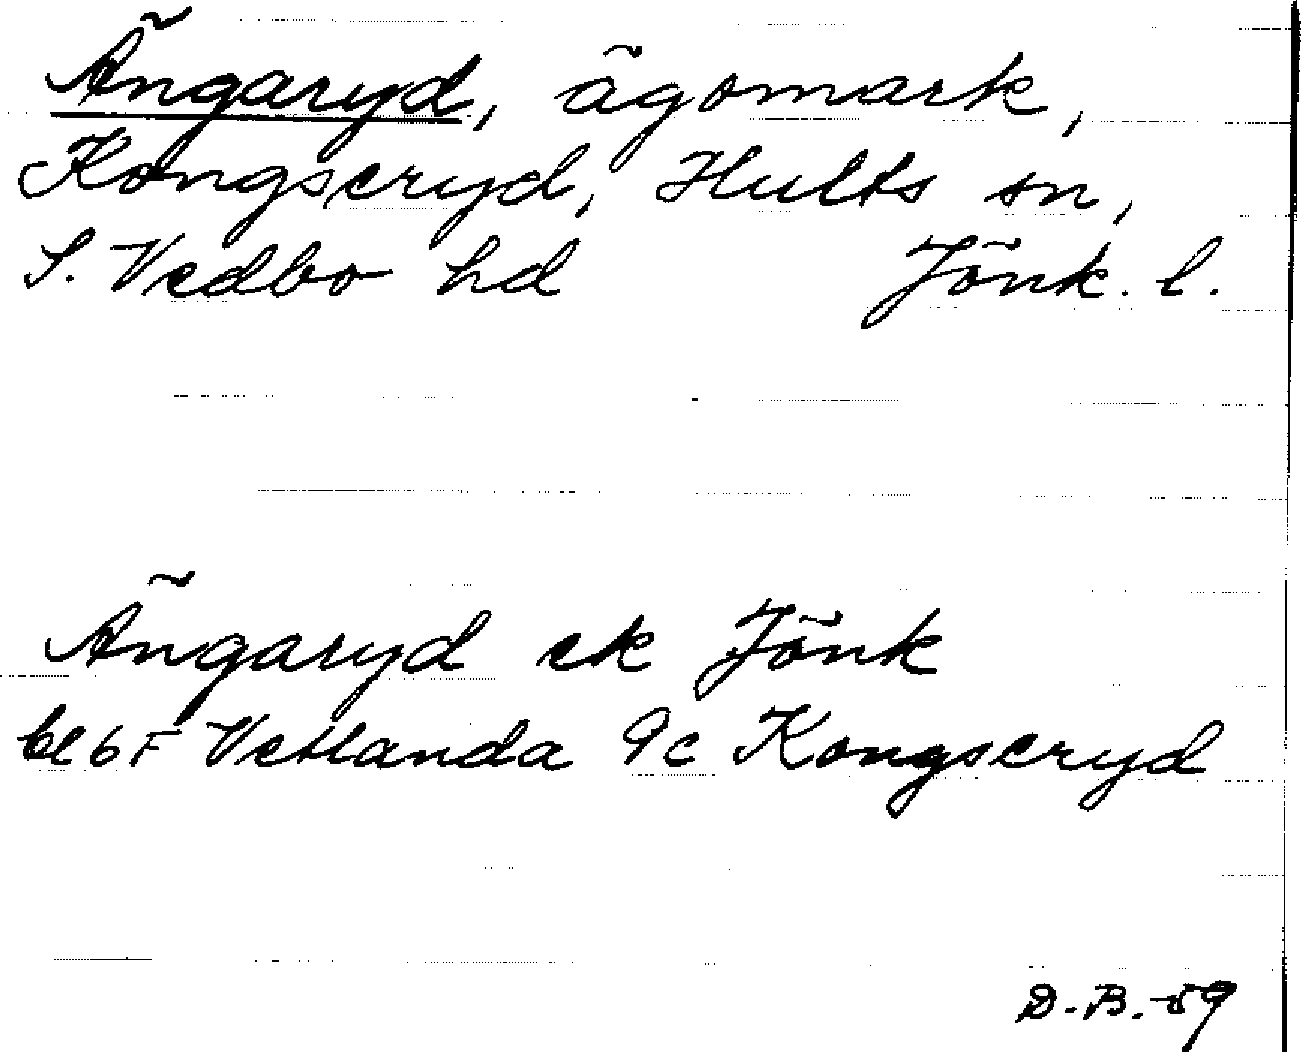 Ängaryd, ägomark,
Kongseryd, Hults sn,
S. Vedbo hd Jönk. l.
Ängaryd ek Jönk
bl 6 F Vetlanda 9c Kongseryd
D.B.-59